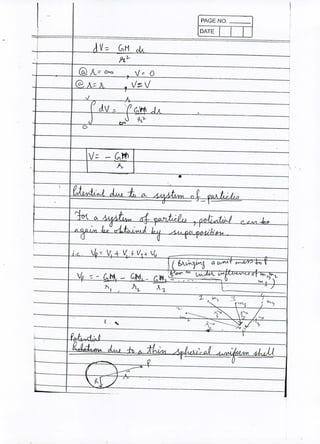 PAGE NO.
DATE
dV = GM dr
r²
@ r = ∞ , V = 0
@ r = r , V = V
V r
∫ dV = ∫ GM dr
0 ∞ r²
V = - GM
r
Potential due to a system of particles
For a system of particles, potential can be
again be obtained by superposition.
i.e. Vp = V₁ + V₂ + V₃ + V₄
(Bringing a unit mass to P
from ∞ under influence of m₁, m₂
m₃)
Vp = - GM₁ - GM₂ - GM₃
r₁ r₂ r₃
Potential
Relation due to a thin spherical uniform shell
P
R r